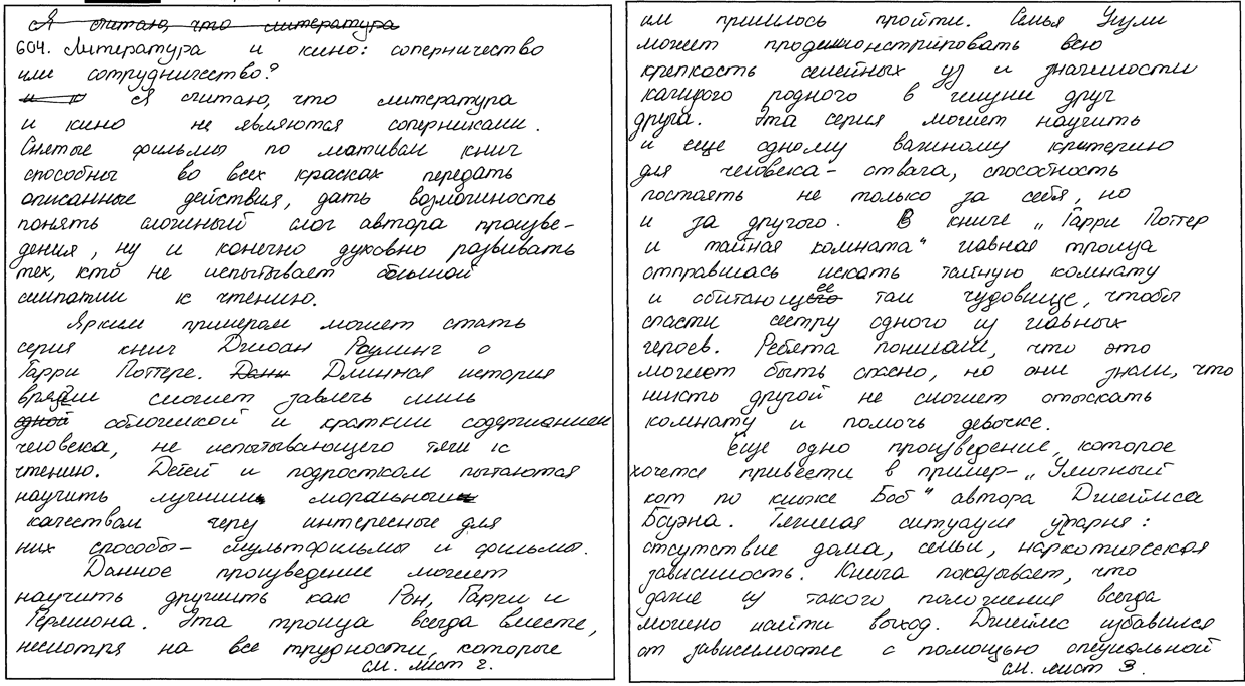 Я считаю, что литература
604. Литература и кино: соперничество
или сотрудничество?
и к Я считаю, что литература
и кино не являются соперниками.
Снятые фильмы по мотивам книг
способны во всех красках передать
описанные действия, дать возможность
понять сложный слог автора произве-
дения, ну и конечно духовно развивать
тех, кто не испытывает большой
симпатии к чтению.
Ярким примером может стать
серия книг Джоан Роулинг о
Гарри Поттере. Данн Длинная история
врядли сможет завлечь лишь
одной обложкой и кратким содержанием
человека, не испытывающего тяги к
чтению. Детей и подростком пытаются
научить лучшим моральным
качествам через интересные для
них способы - мультфильмы и фильмы.
Данное произведение может
научить дружить как Рон, Гарри и
Гермиона. Эта троица всегда вместе,
несмотря на все трудности, которые
см. лист 2.
им пришлось пройти. Семья Уизли
может продемонстрировать всю
крепкость семейных уз и значимости
каждого родного в жизни друг
друга. Эта серия может научить
и еще одному важному критерию
для человека - отвага, способность
постаять не только за себя, но
и за другого. В книге „Гарри Поттер
и тайная комната" главная троица
отправилась искать тайную комнату
и обитающее там чудовище, чтобы
спасти сестру одного из главных
героев. Ребята понимали, что это
может быть опасно, но они знали, что
никто другой не сможет отыскать
комнату и помочь девочке.
Еще одно произведение, которое
хочется привести в пример - „Уличный
кот по кличке Боб" автора Джеймса
Боуэна. Тяжелая ситуация у парня:
отсутствие дома, семьи, наркотическая
зависимость. Книга показывает, что
даже из такого положения всегда
можно найти выход. Джеймс избавился
от зависимости с помощью специальной
см. лист 3.